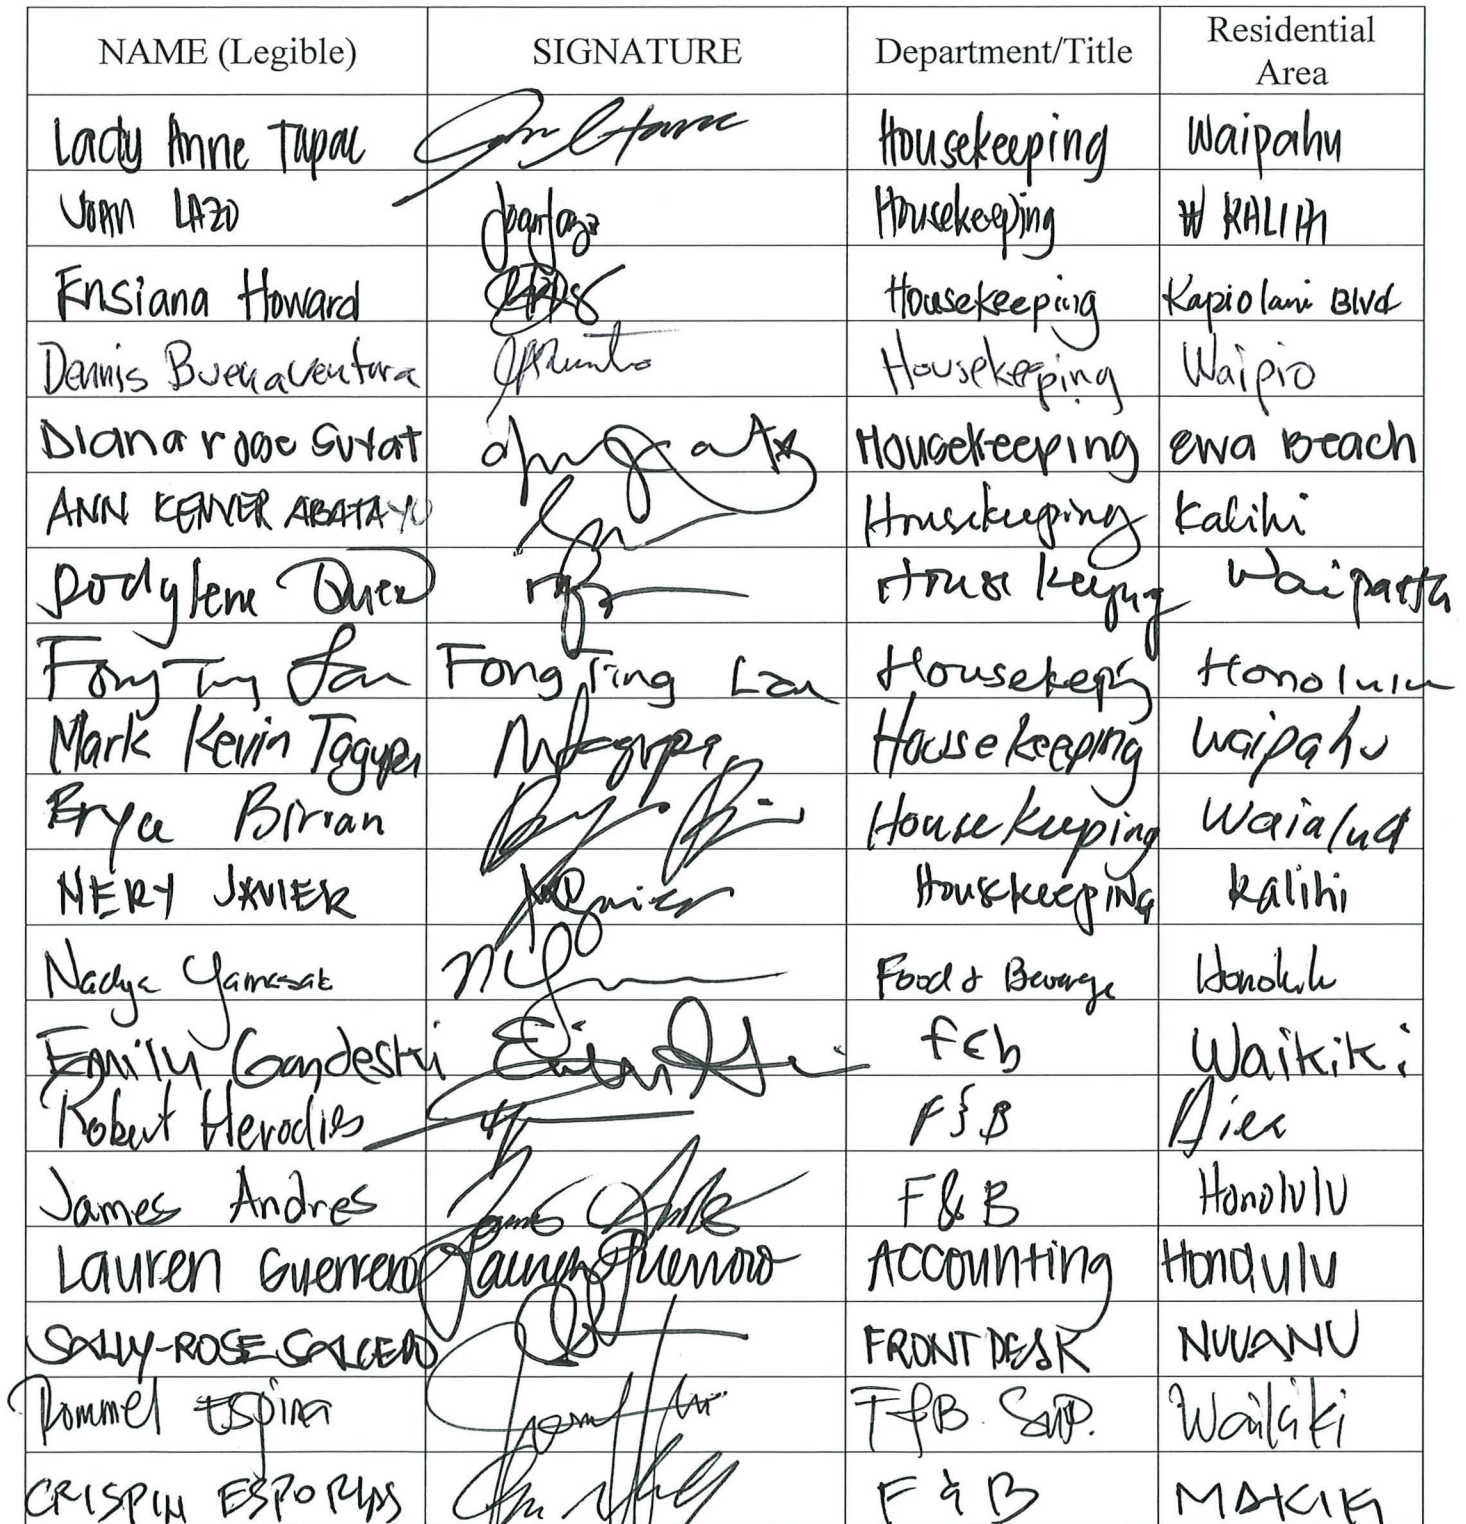 NAME (Legible) SIGNATURE Department/Title Residential Area
Lady Anne Tapac Housekeeping Waipahu
JOAN LAZO Joan Lazo Housekeeping W KALIHI
Ensiana Howard Housekeeping Kapiolani Blvd
Dennis Buenaventura Housekeeping Waipio
Diana rose Suyat Housekeeping ewa Beach
ANN KENVER ABATAYO Housekeeping Kalihi
Dodylene House Keeping
Fong Ting Lau Fong Ting Lau Housekeeping Honolulu
Mark Kevin Tagupa Mtagupa Housekeeping Waipahu
Birran House Keeping Waialua
NERY JAVIER Housekeeping Kalihi
Nadya Food & Beverage
Emily f&b Waikiki
Robert F&B Aiea
James Andres James Andres F&B Honolulu
Lauren Guerrero Lauren Guerrero Accounting Honolulu
SALLY-ROSE SALCEDO FRONT DESK NUUANU
Rommel Espina F&B Sup. Waikiki
CRISPIN F & B MAKIKI